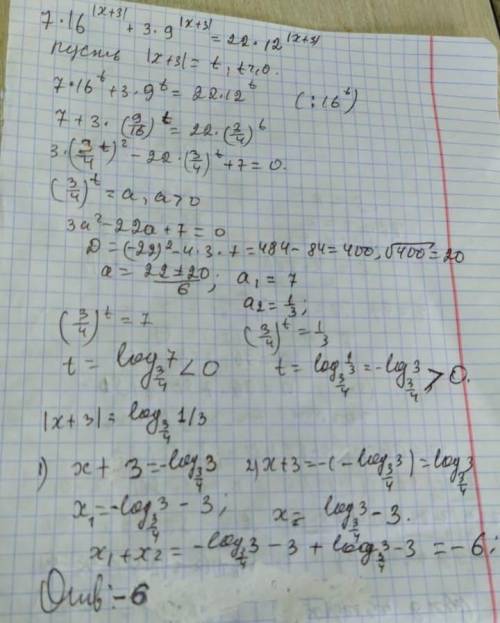 7·16^|x+3| + 3·9^|x+3| = 22·12^|x+3|
пусть |x+3| = t, t≥0.
7·16^t + 3·9^t = 22·12^t (:16^t)
7 + 3·(9/16)^t = 22·(3/4)^t
3·(3/4^t)² - 22·(3/4)^t + 7 = 0.
(3/4)^t = a, a>0
3a² - 22a + 7 = 0
D = (-22)² - 4·3·7 = 484 - 84 = 400, √400 = 20
a = (22±20)/6; a₁ = 7
a₂ = 1/3;
(3/4)^t = 7 (3/4)^t = 1/3
t = log_{3/4} 7 < 0 t = log_{3/4} 1/3 = -log_{3/4} 3 > 0.
|x+3| = log_{3/4} 1/3
1) x + 3 = -log_{3/4} 3 2) x+3 = -(-log_{3/4} 3) = log_{3/4} 3
x₁ = -log_{3/4} 3 - 3; x₂ = log_{3/4} 3 - 3.
x₁ + x₂ = -log_{3/4} 3 - 3 + log_{3/4} 3 - 3 = -6;
Отв: -6